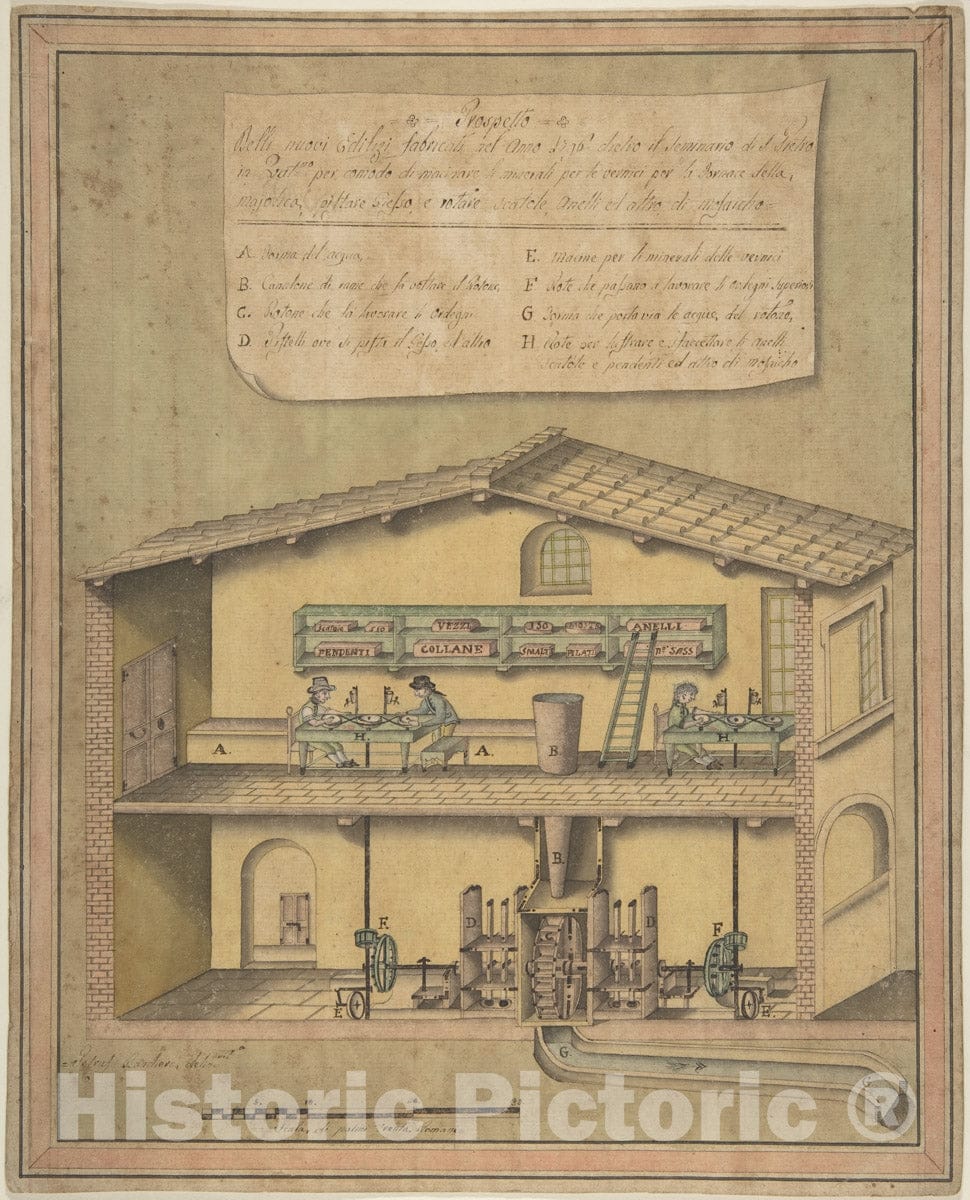 Prospetto
Delli nuovi Edifizi fabricati nel Anno dietro il Seminario di S. Pietro
in Vat.no per comodo di macinare li minerali per le vernici per la Fornace della
majolica, pistare Gesso, e rotare Scatole, Anelli ed altro di mosaicho
A. Forma del acqua,
B. Canalone di rame che fà voltare il Rotone,
C. Rotone che fà lavorare li ordegni
D. Pistelli ove si pista il Gesso, ed altro
E. Macine per li minerali delle vernici
F Rote che passano à lavorare li ordegni Superiori
G Forma che porta via le acque, del rotone,
H Rote per lustrare e sfaccettare li anelli
Scatole e pendenti ed altro di mosaicho
SCATOLE 510 VEZZI 130 ANELLI
PENDENTI COLLANE SMALTI PILATI N° SASS
H. H.
A. A. B
B.
D C D
F. F
E E.
G.
G
delin
5. 10. 20 30
Scala, di palmi Romani
Historic Pictoric ®